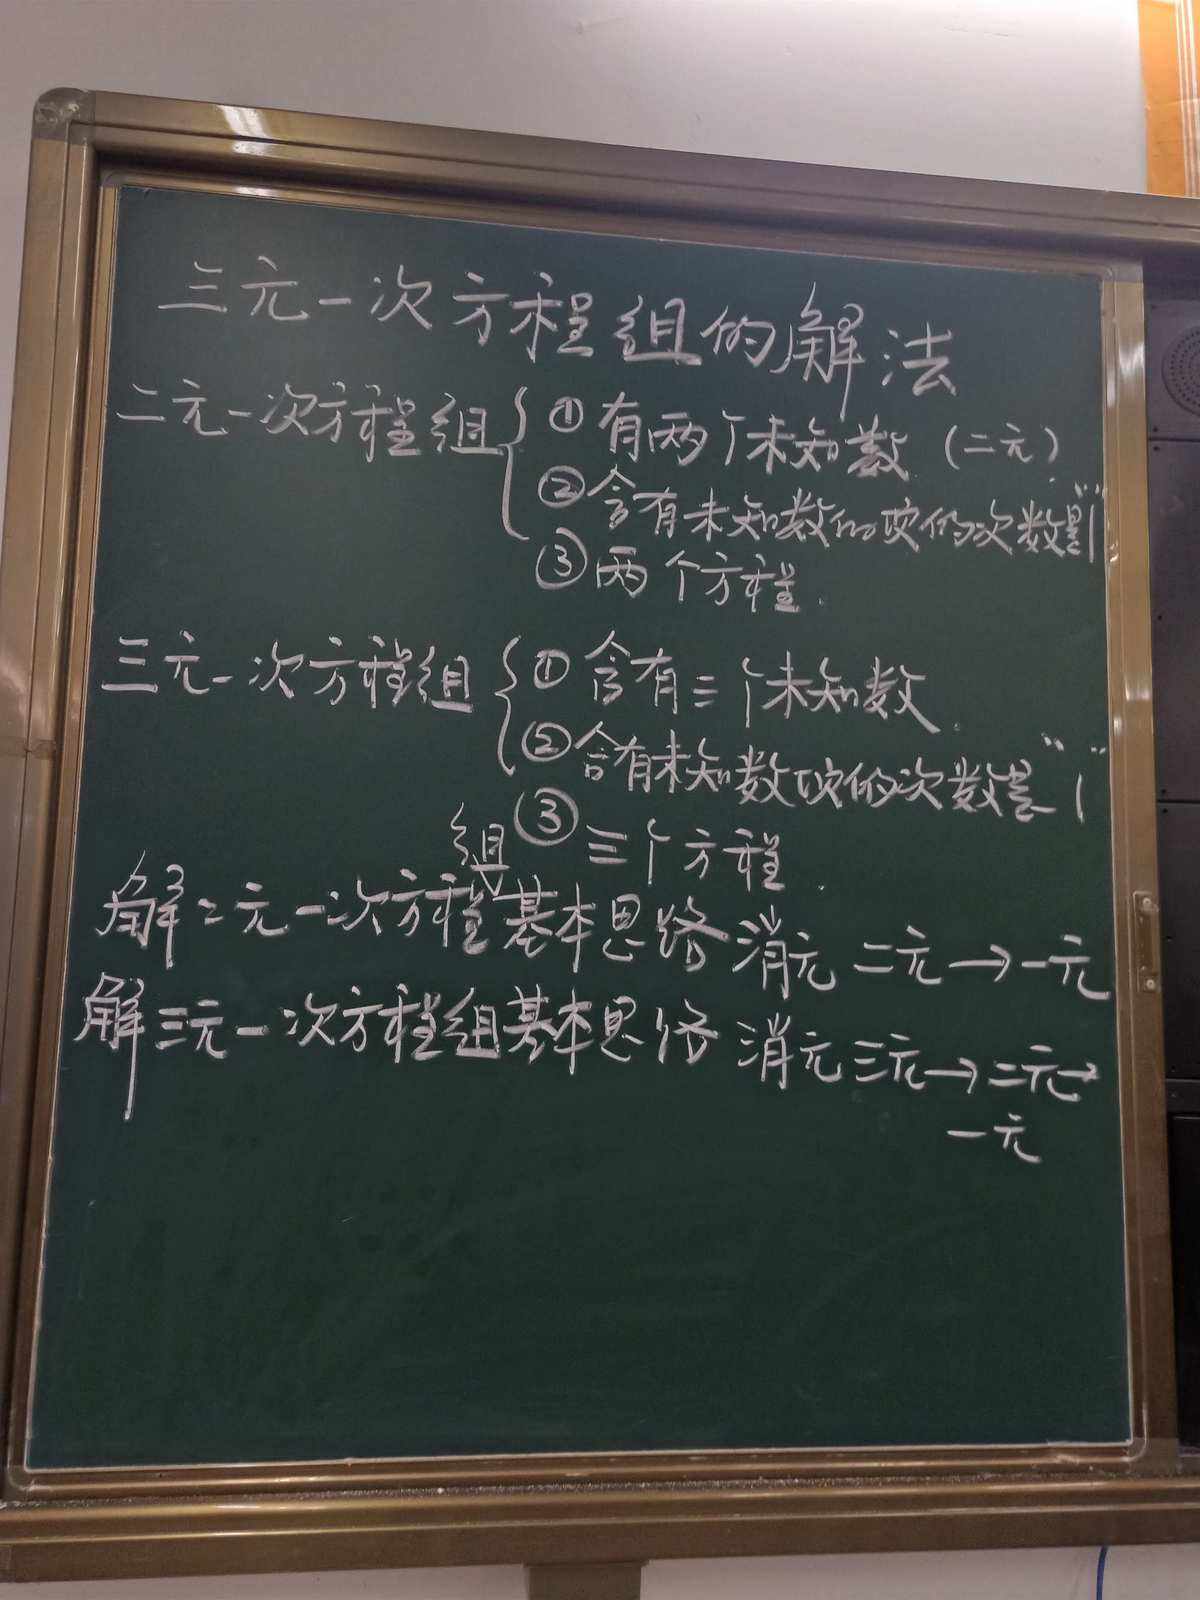 三元一次方程组的解法
二元一次方程组{①有两个未知数(二元)
②含有未知数的项的次数是"1"
③两个方程.
三元一次方程组{①含有三个未知数.
②含有未知数项的次数是"1"
③三个方程.
组
解二元一次方程基本思路 消元 二元→一元
解三元一次方程组基本思路 消元 三元→二元→
一元